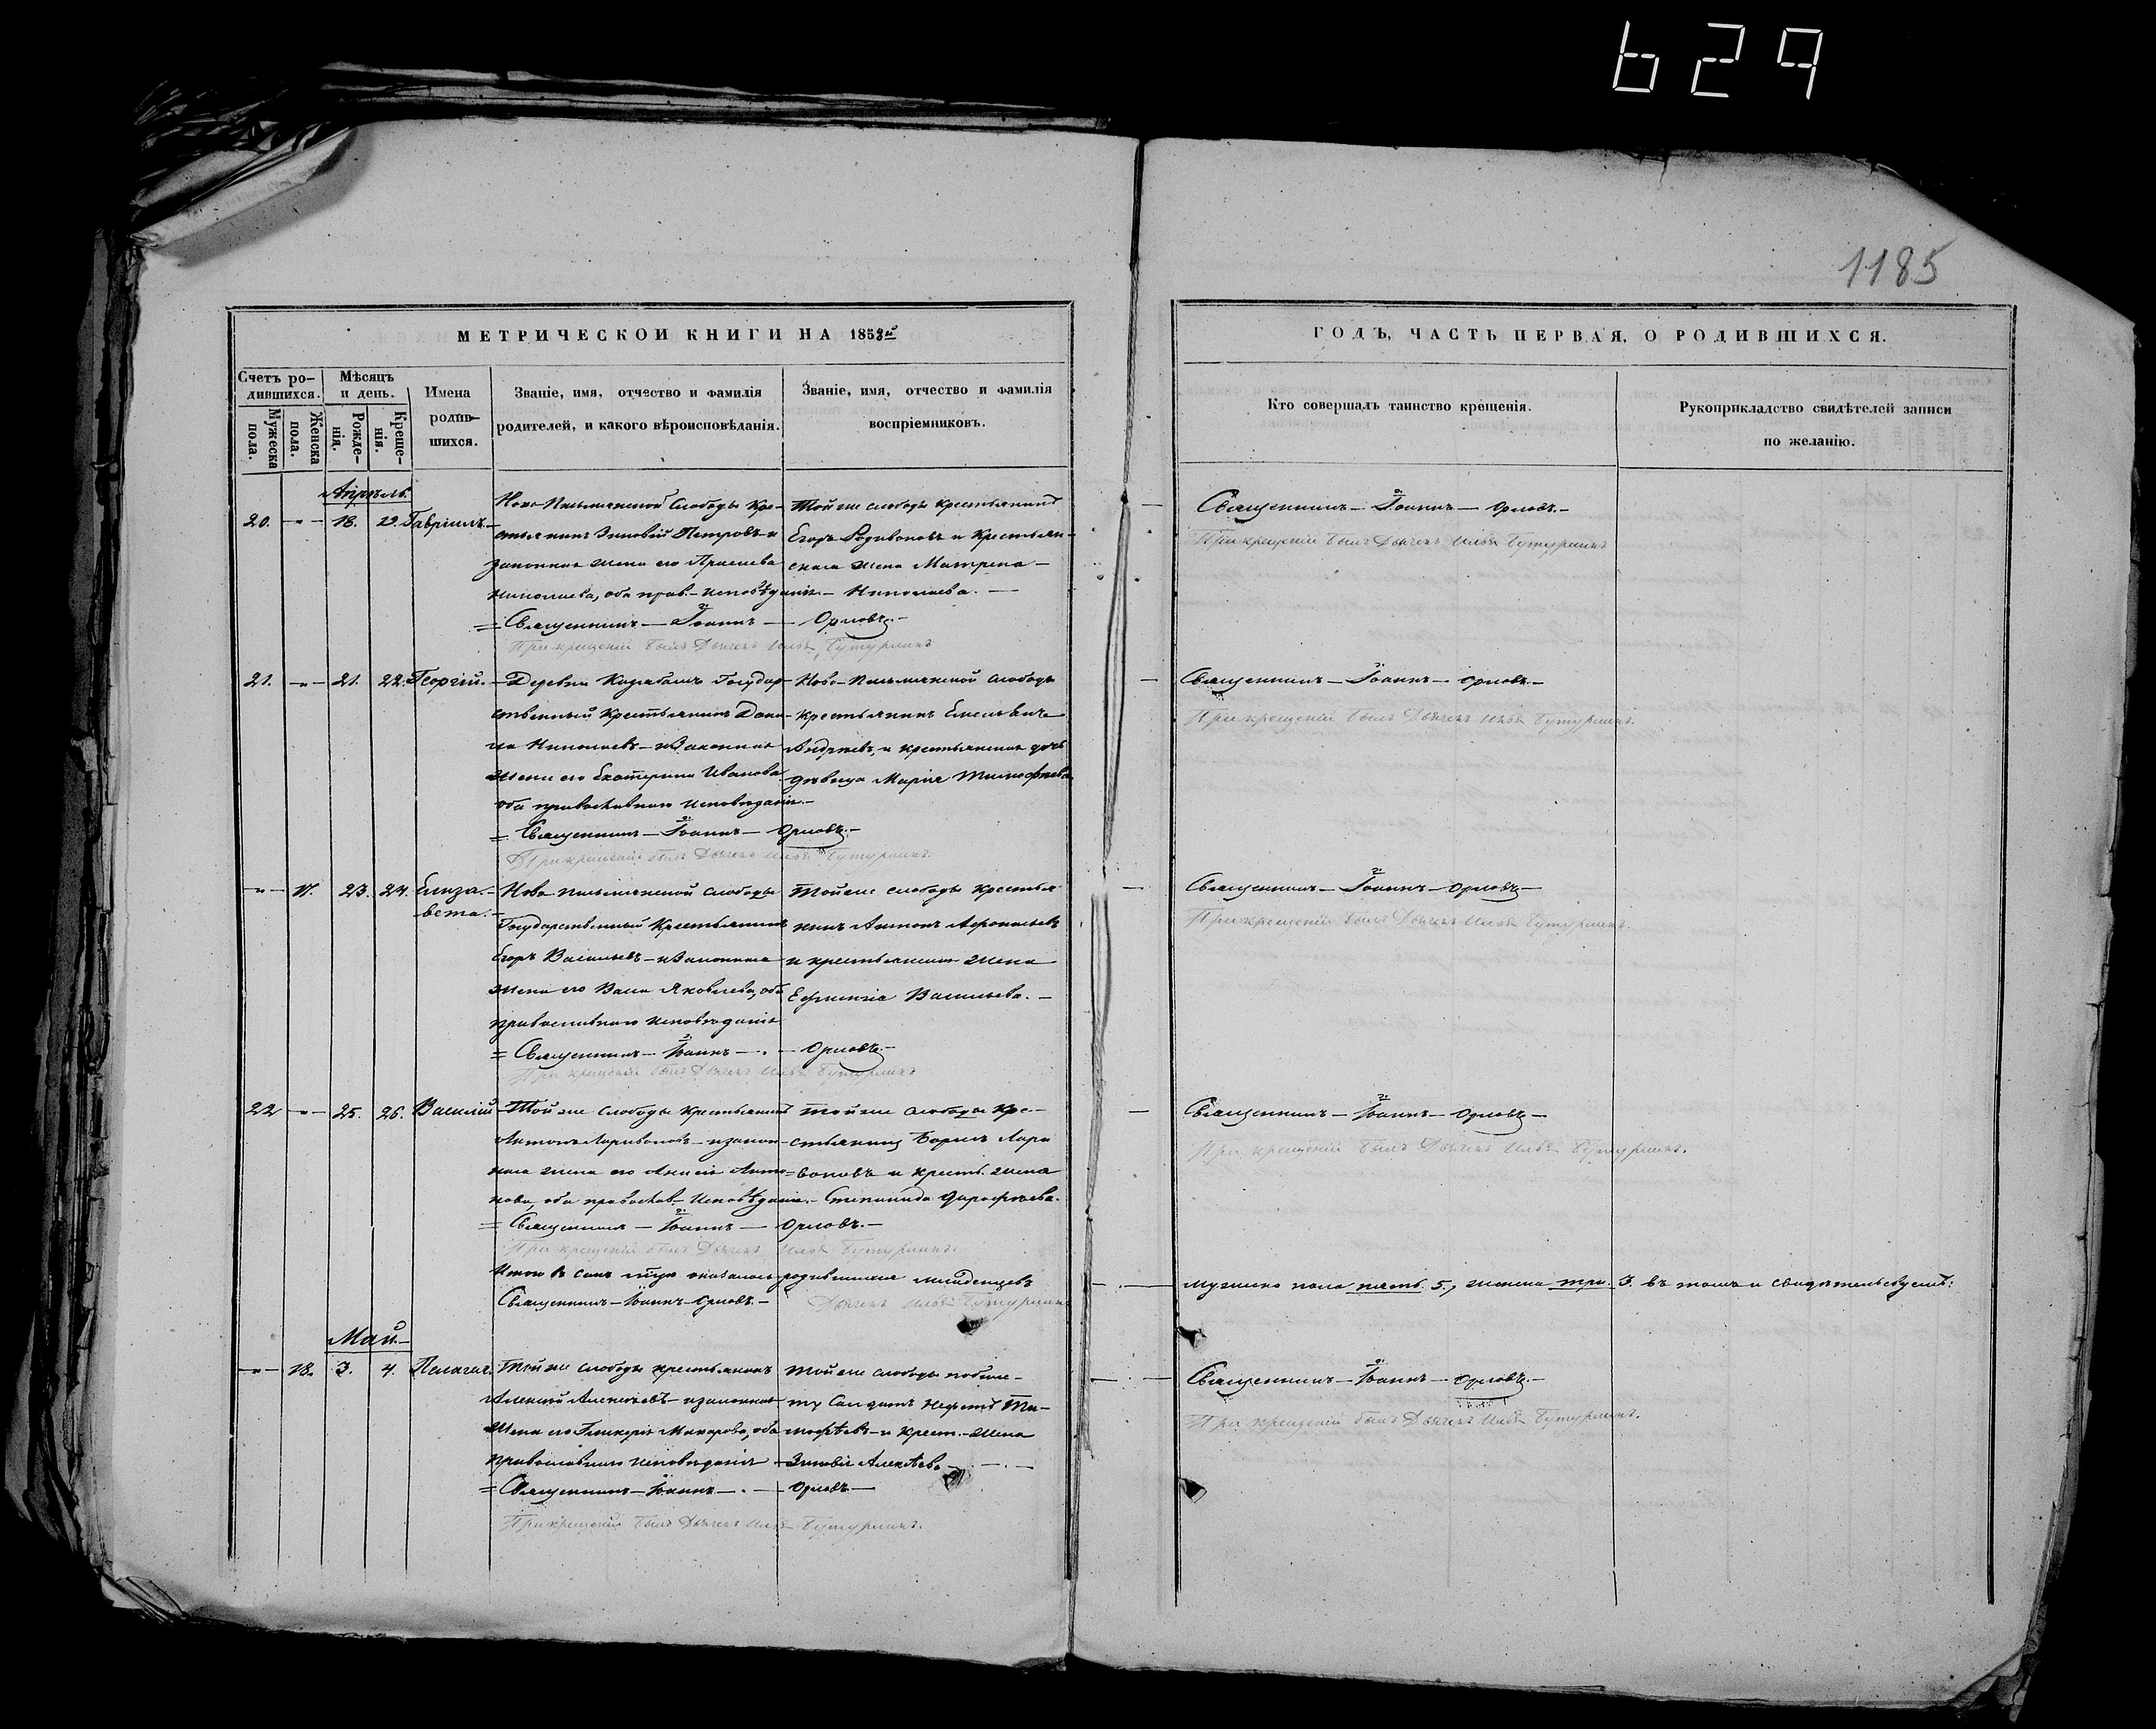 629
1185
МЕТРИЧЕСКОЙ КНИГИ НА 1852й
ГОДЪ, ЧАСТЬ ПЕРВАЯ, О РОДИВШИХСЯ.
Счетъ ро-
дившихся.
Мужеска
пола.
Женска
пола.
Мѣсяцъ
и день.
Рожде-
нія.
Креще-
нія.
Имена
родив-
шихся.
Званіе, имя, отчество и фамилія
родителей, и какого вѣроисповѣданія.
Званіе, имя, отчество и фамилія
воспріемниковъ.
Кто совершалъ таинство крещенія.
Рукоприкладство свидѣтелей записи
по желанію.
Апрѣль.
20. 18. 19. Гавріилъ.
Ново-Письмянской Слободы Кре-
стьянинъ Зиновій Петровъ и
законная жена его Прасковья
Николаева, оба прав. исповѣданія.
Тойже слободы крестьянинъ
Егоръ Родивоновъ и Крестьян-
ская жена Матрена
Николаева.
Священникъ Іоаннъ Орловъ.
При крещеніи былъ Дьячекъ Илья Бутурлинъ
Священникъ Іоаннъ Орловъ.
При крещеніи былъ Дьячекъ Илья Бутурлинъ
21. 21. 22. Георгій.
Деревни Государ-
ственный Крестьянинъ Дани-
ла Николаевъ и законная
жена его Екатерина Иванова
оба православнаго исповѣданія.
Ново-Письмянской слободы
крестьянинъ
Андреевъ, и крестьянская дочь
дѣвица Марія Тимофѣева
Священникъ Іоаннъ Орловъ.
При крещеніи былъ Дьячекъ Илья Бутурлинъ.
Священникъ Іоаннъ Орловъ.
При крещеніи былъ Дьячекъ Илья Бутурлинъ.
17. 23. 24. Елиза-
вета.
Ново-Письмянской слободы
Государственный Крестьянинъ
Егоръ Васильевъ и законная
жена его Васса Яковлева, оба
православнаго исповѣданія
Тойже слободы крестья
нинъ Антонъ Афонасьевъ
и крестьянская жена
Васильева.
Священникъ Іоаннъ Орловъ.
При крещеніи былъ Дьячекъ Илья Бутурлинъ
Священникъ Іоаннъ Орловъ
При крещеніи былъ Дьячекъ Илья Бутурлинъ.
22 25. 26. Василій
Тойже слободы крестьянинъ
Антонъ Ларивоновъ и закон-
ная жена его Анто-
нова, оба православ. исповѣданія.
Тойже слободы Кре-
стьянинъ Борисъ Лари
воновъ и крест. жена
Степанида Дорофѣева.
Священникъ Іоаннъ Орловъ.
При крещеніи былъ Дьячекъ Илья Бутурлинъ.
Священникъ Іоаннъ Орловъ
При крещеніи былъ Дьячекъ Илья Бутурлинъ.
Итого въ семъ оказалось родившихся младенцевъ
мужеска пола пять 5., женска три 3. въ томъ и свидѣтельствуемъ:
Священникъ Іоаннъ Орловъ. Дьячекъ Илья Бутурлинъ
Май.
18. 3. 4. Пелагея
Тойже слободы крестьянинъ
Алексѣй Алексѣевъ и законная
жена его Гликерія Макарова, оба
православнаго исповѣданія
Тойже слободы
Солдатъ Нефедъ Ти-
мофѣевъ и крест. жена
Зиновія Алексѣева
Священникъ Іоаннъ Орловъ
При крещеніи былъ Дьячекъ Илья Бутурлинъ.
Священникъ Іоаннъ Орловъ.
При крещеніи былъ Дьячекъ Илья Бутурлинъ.